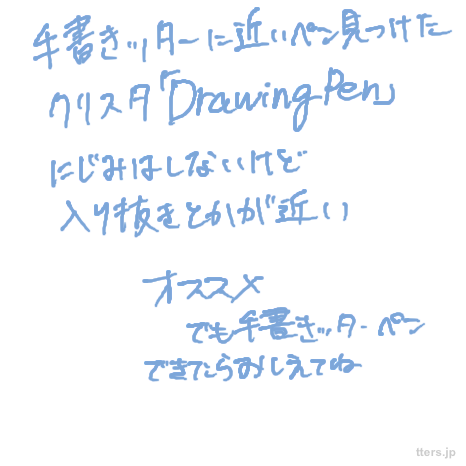 手書きッターに近いペン見つけた
クリスタ「DrawingPen」
にじみはしないけど
入り抜きとかが近い
オススメ
でも手書きッターペン
できたらおしえてね
tters.jp